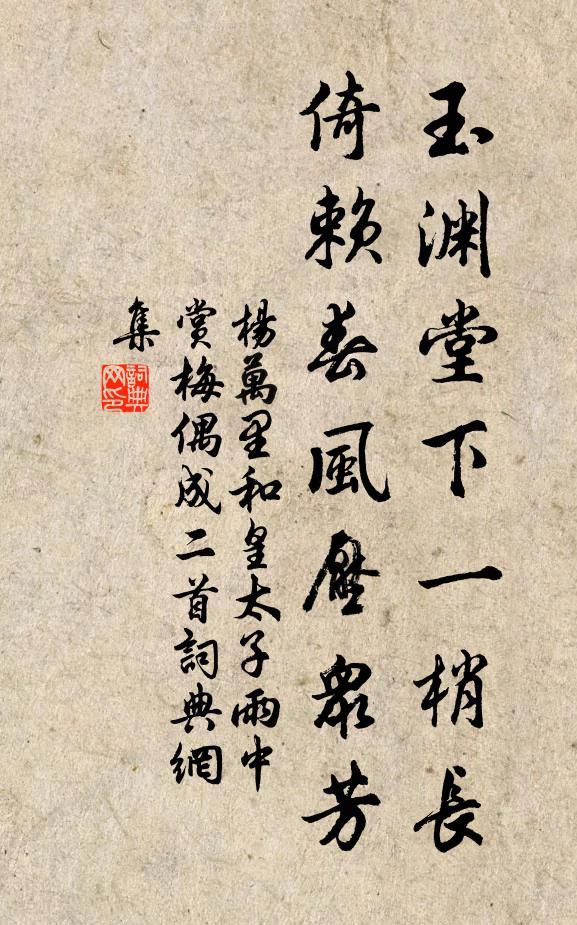 玉渊堂下一梢長
倚賴春風壓眾芳
楊萬里和皇太子雨中
賞梅偶成二首詞典網
集
詞典
网印